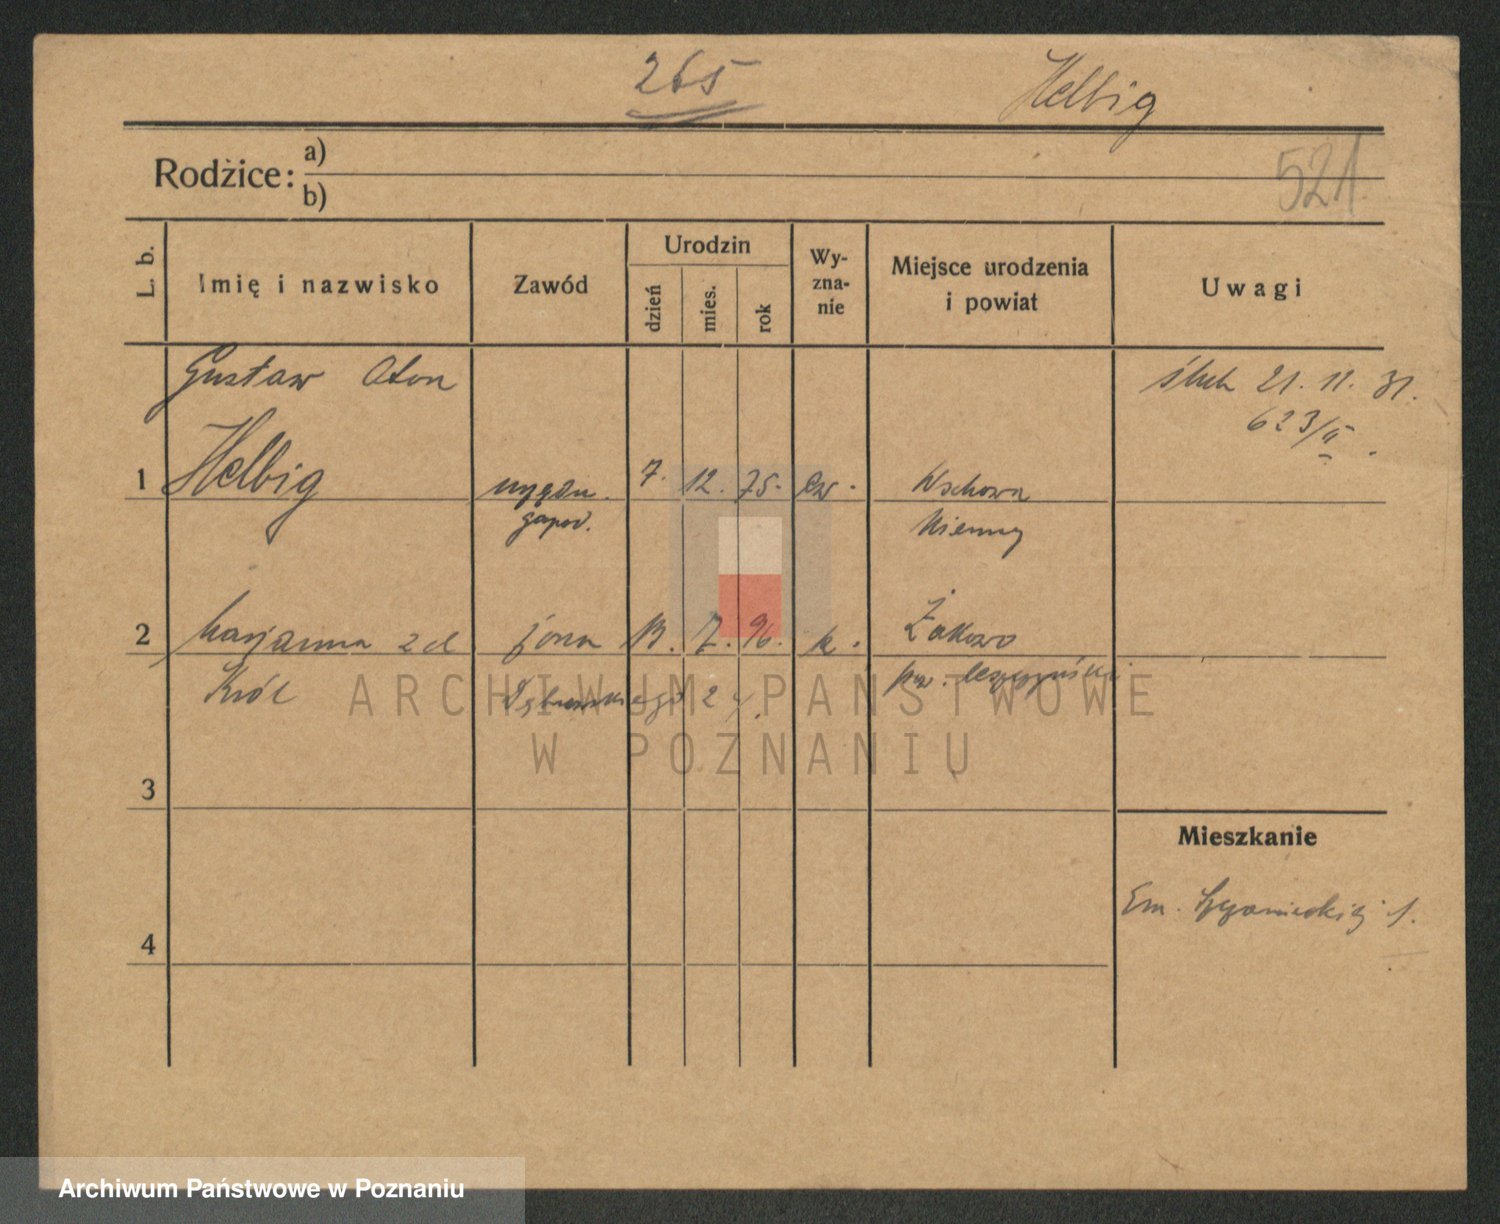 265
Helbig
Rodzice: a)
b)
521
L. b.
Imię i nazwisko
Zawód
Urodzin
dzień
mies.
rok
Wy-
zna-
nie
Miejsce urodzenia
i powiat
Uwagi
Gustaw Oton
ślub 21. 11. 31.
623/II.
1 Helbig urzędn. 7. 12. 75. ew. Wschowa
gospod. Niemcy
2 Marjanna z d. żona 13. 7. 96. k. Żakowo
Król Dąbrowskiego 24. pow. leszczyński
ARCHIWUM PAŃSTWOWE
W POZNANIU
3
Mieszkanie
Em. Szczanieckiej 1.
4
Archiwum Państwowe w Poznaniu